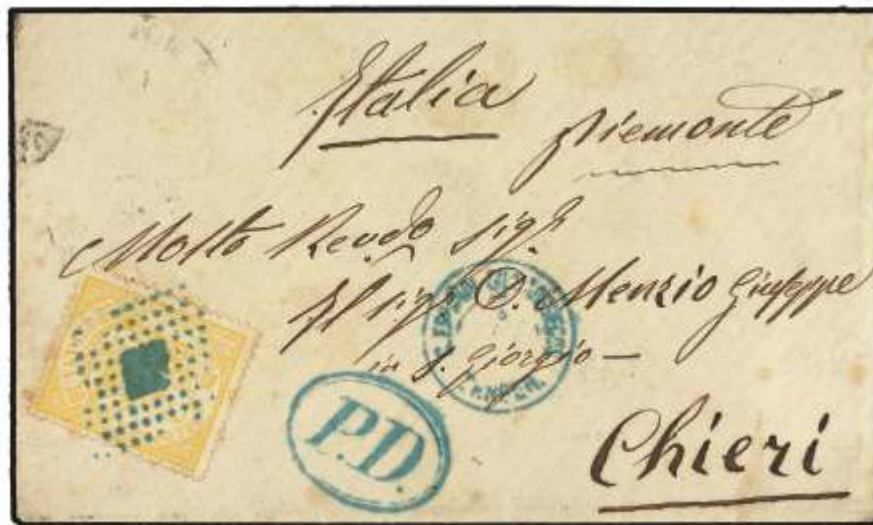 Italia
Piemonte
Molto Revdo Sigr
Il sigr D. Menzio Giuseppe
in S. Giorgio —
P.D.
Chieri